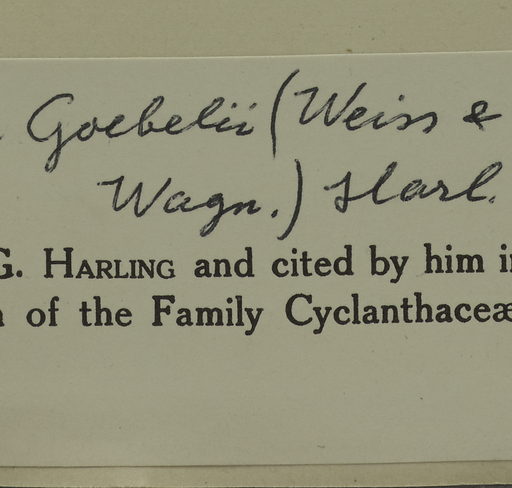 Goebelii (Weiss &
Wagn.) Harl.
G. HARLING and cited by him in
of the Family Cyclanthaceæ